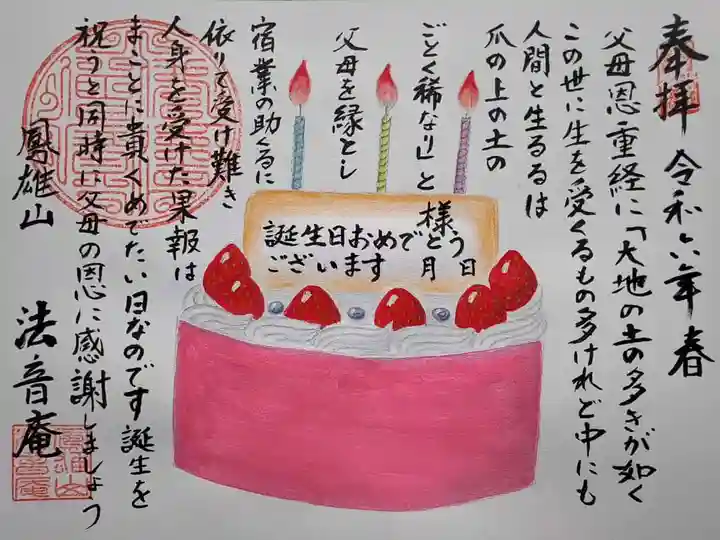 奉拝 令和六年春
父母恩重経に「大地の土の多きが如く
この世に生を受くるもの多けれど中にも
人間と生るるは
爪の上の土の
ごとく稀なり」と
父母を縁とし
宿業の助くるに
依りて受け難き
人身を受けた果報は
まことに貴くめでたい日なのです誕生を
祝うと同時に父母の恩に感謝しましょう
鳳雄山 法音庵
様
誕生日おめでとう
ございます 月 日